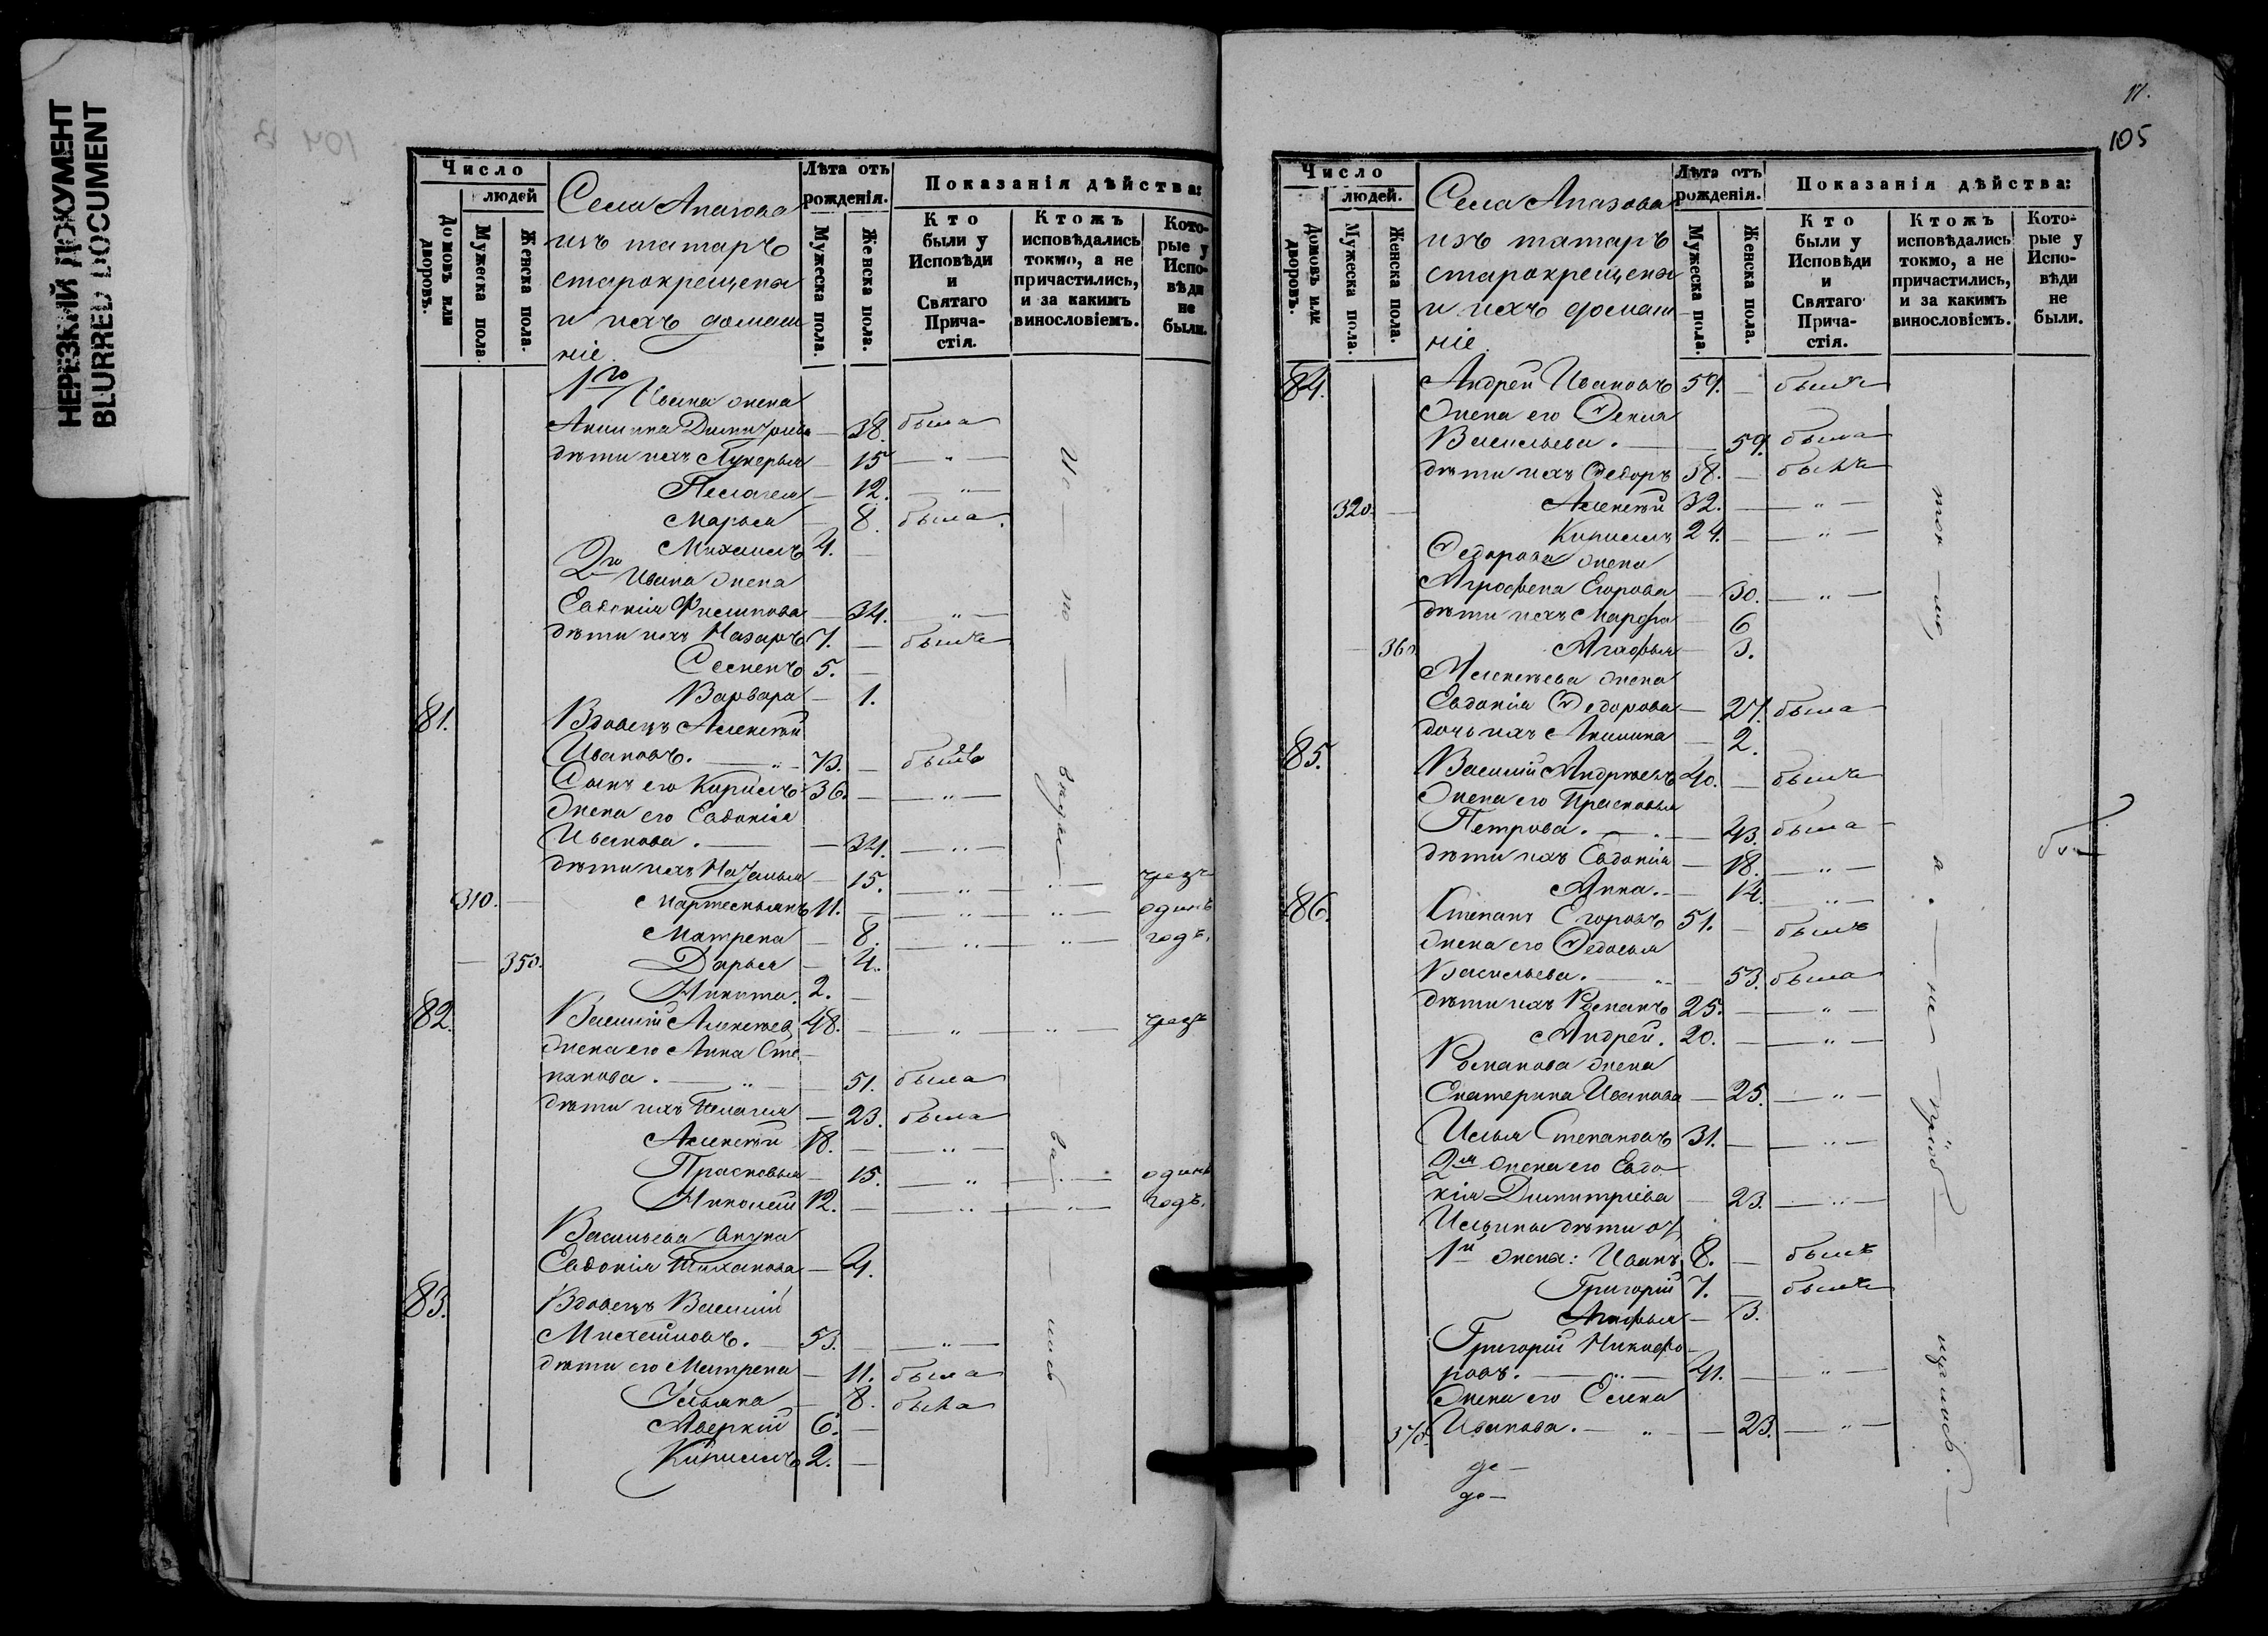 НЕРЕЗКИЙ ДОКУМЕНТ
BLURRED DOCUMENT
Число
людей
Домовъ или дворовъ.
Мужеска пола.
Женска пола.
Села Апазова
изъ татаръ
старокрещены
и ихъ домаш
ніе.
Лѣта отъ
рожденія.
Мужеска пола.
Женска пола.
Показанія дѣйства:
Кто
были у
Исповѣди
и
Святаго
Прича-
стія.
Ктожъ
исповѣдались
токмо, а не
причастились,
и за какимъ
винословіемъ.
Кото-
рые у
Испо-
вѣди
не
были.
1го Ивана жена
Акилина Димитріева — 38. была
дѣти ихъ Гликерья — 15 — " —
Пелагея — 12. — " —
Марья — 8. была.
Михаилъ 4. —
2го Ивана жена
Евдокія Филипова — 34. — " —
дѣти ихъ Назаръ 7. — былъ
Семенъ 5. —
Варвара — 1.
81. Вдовецъ Алексѣй
Ивановъ. — " — 73. — былъ
Сынъ его Кирилъ 36. — — " —
Жена его Евдокія
Иванова. — — 34. — " —
дѣти ихъ Наталья — 15. — " — " — чрезъ
310. — 11. — — " — " — одинъ
Матрена — 8. — " — " — годъ.
— 350. Дарья — 4.
Никита. 2. —
82. Василій Алексѣев 48. — — " — " — чрезъ
жена его Анна Сте-
панова. — " — — 51. была
дѣти ихъ Пелагея — 23. была
Алексѣй 18. — — " —
Прасковья — 15. — " — " — одинъ
Николай 12. — — " — " — годъ.
Васильева внука
Евдокія Тиханова — 4.
83. Вдовецъ Василій
Михайловъ. — 53. — — " —
дѣти его Матрена — 11. была
Ульяна — 8. была
Аверкій 6. —
Кирилъ 2. —
17.
105
Число
людей.
Домовъ или дворовъ.
Мужеска пола.
Женска пола.
Села Апазова
изъ татаръ
старокрещены
и ихъ домаш
ніе.
Лѣта отъ
рожденія.
Мужеска пола.
Женска пола.
Показанія дѣйства:
Кто
были у
Исповѣди
и
Святаго
Прича-
стія.
Ктожъ
исповѣдались
токмо, а не
причастились,
и за какимъ
винословіемъ.
Кото-
рые у
Испо-
вѣди
не
были.
84. Андрей Ивановъ 59. — былъ
Жена его Фекла
Васильева. — — 59. была
дѣти ихъ Федоръ 38. — былъ
320. — Алексѣй 32. — — " —
Кирилъ 24. — — " —
Федорова жена
Агрофена Егорова — 30. — " —
дѣти ихъ Марфа — 6
— 360 Агафья — 3.
Алексѣева жена
Евдокія Федорова — 27. была
дочь ихъ Акилина — 2.
85. Василій Андреевъ 40. — былъ
Жена его Прасковья
Петрова. — — 43. была —
дѣти ихъ Евдокія — 18. — " —
Анна. — 14. — " —
86. Степанъ Егоровъ 51. — былъ
жена его Федосья
Васильева. — " — 53. была
дѣти ихъ Романъ 25. — — " —
Андрей. 20. — — " —
Романова жена
Екатерина Иванова — 25. — " —
Илья Степановъ 31. — — " —
2я жена его Евдо-
кія Димитріева — 23. — " —
Ильины дѣти от
1й жены: Иванъ 8. — былъ
Григорій 7. — былъ
Агафья — 3.
Григорій Никифо-
ровъ. — " — 41. — — " —
Жена его Елена
370. Иванова. — " — — 23. — " —